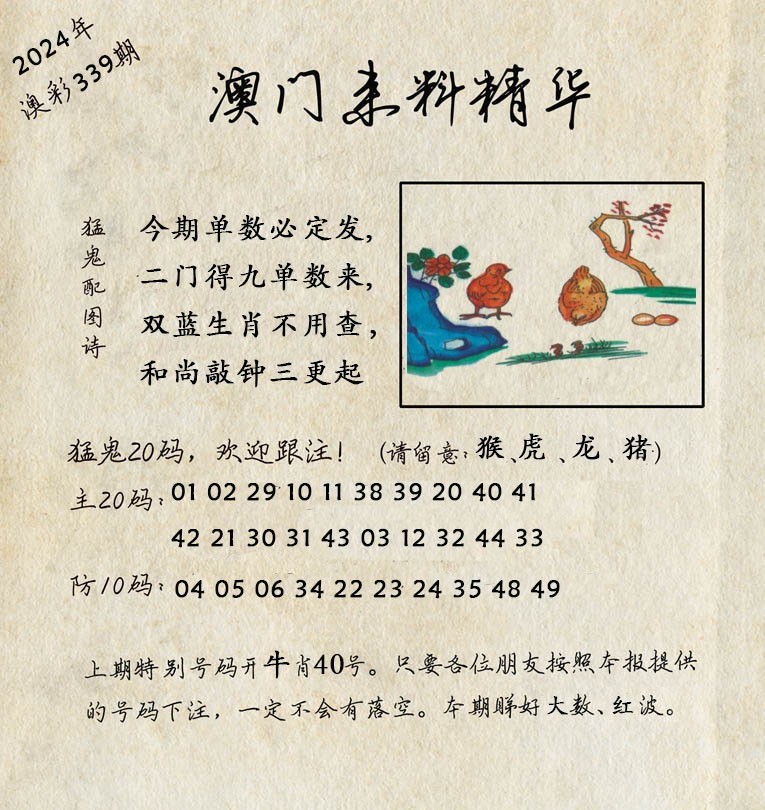 2024年
澳彩339期
澳门来料精华
猛鬼配图诗
今期单数必定发,
二门得九单数来,
双蓝生肖不用查,
和尚敲钟三更起
猛鬼20码，欢迎跟注！ (请留意:猴、虎、龙、猪)
主20码: 01 02 29 10 11 38 39 20 40 41
42 21 30 31 43 03 12 32 44 33
防10码: 04 05 06 34 22 23 24 35 48 49
上期特别号码开牛肖40号。只要各位朋友按照本报提供
的号码下注，一定不会有落空。本期睇好大数、红波。